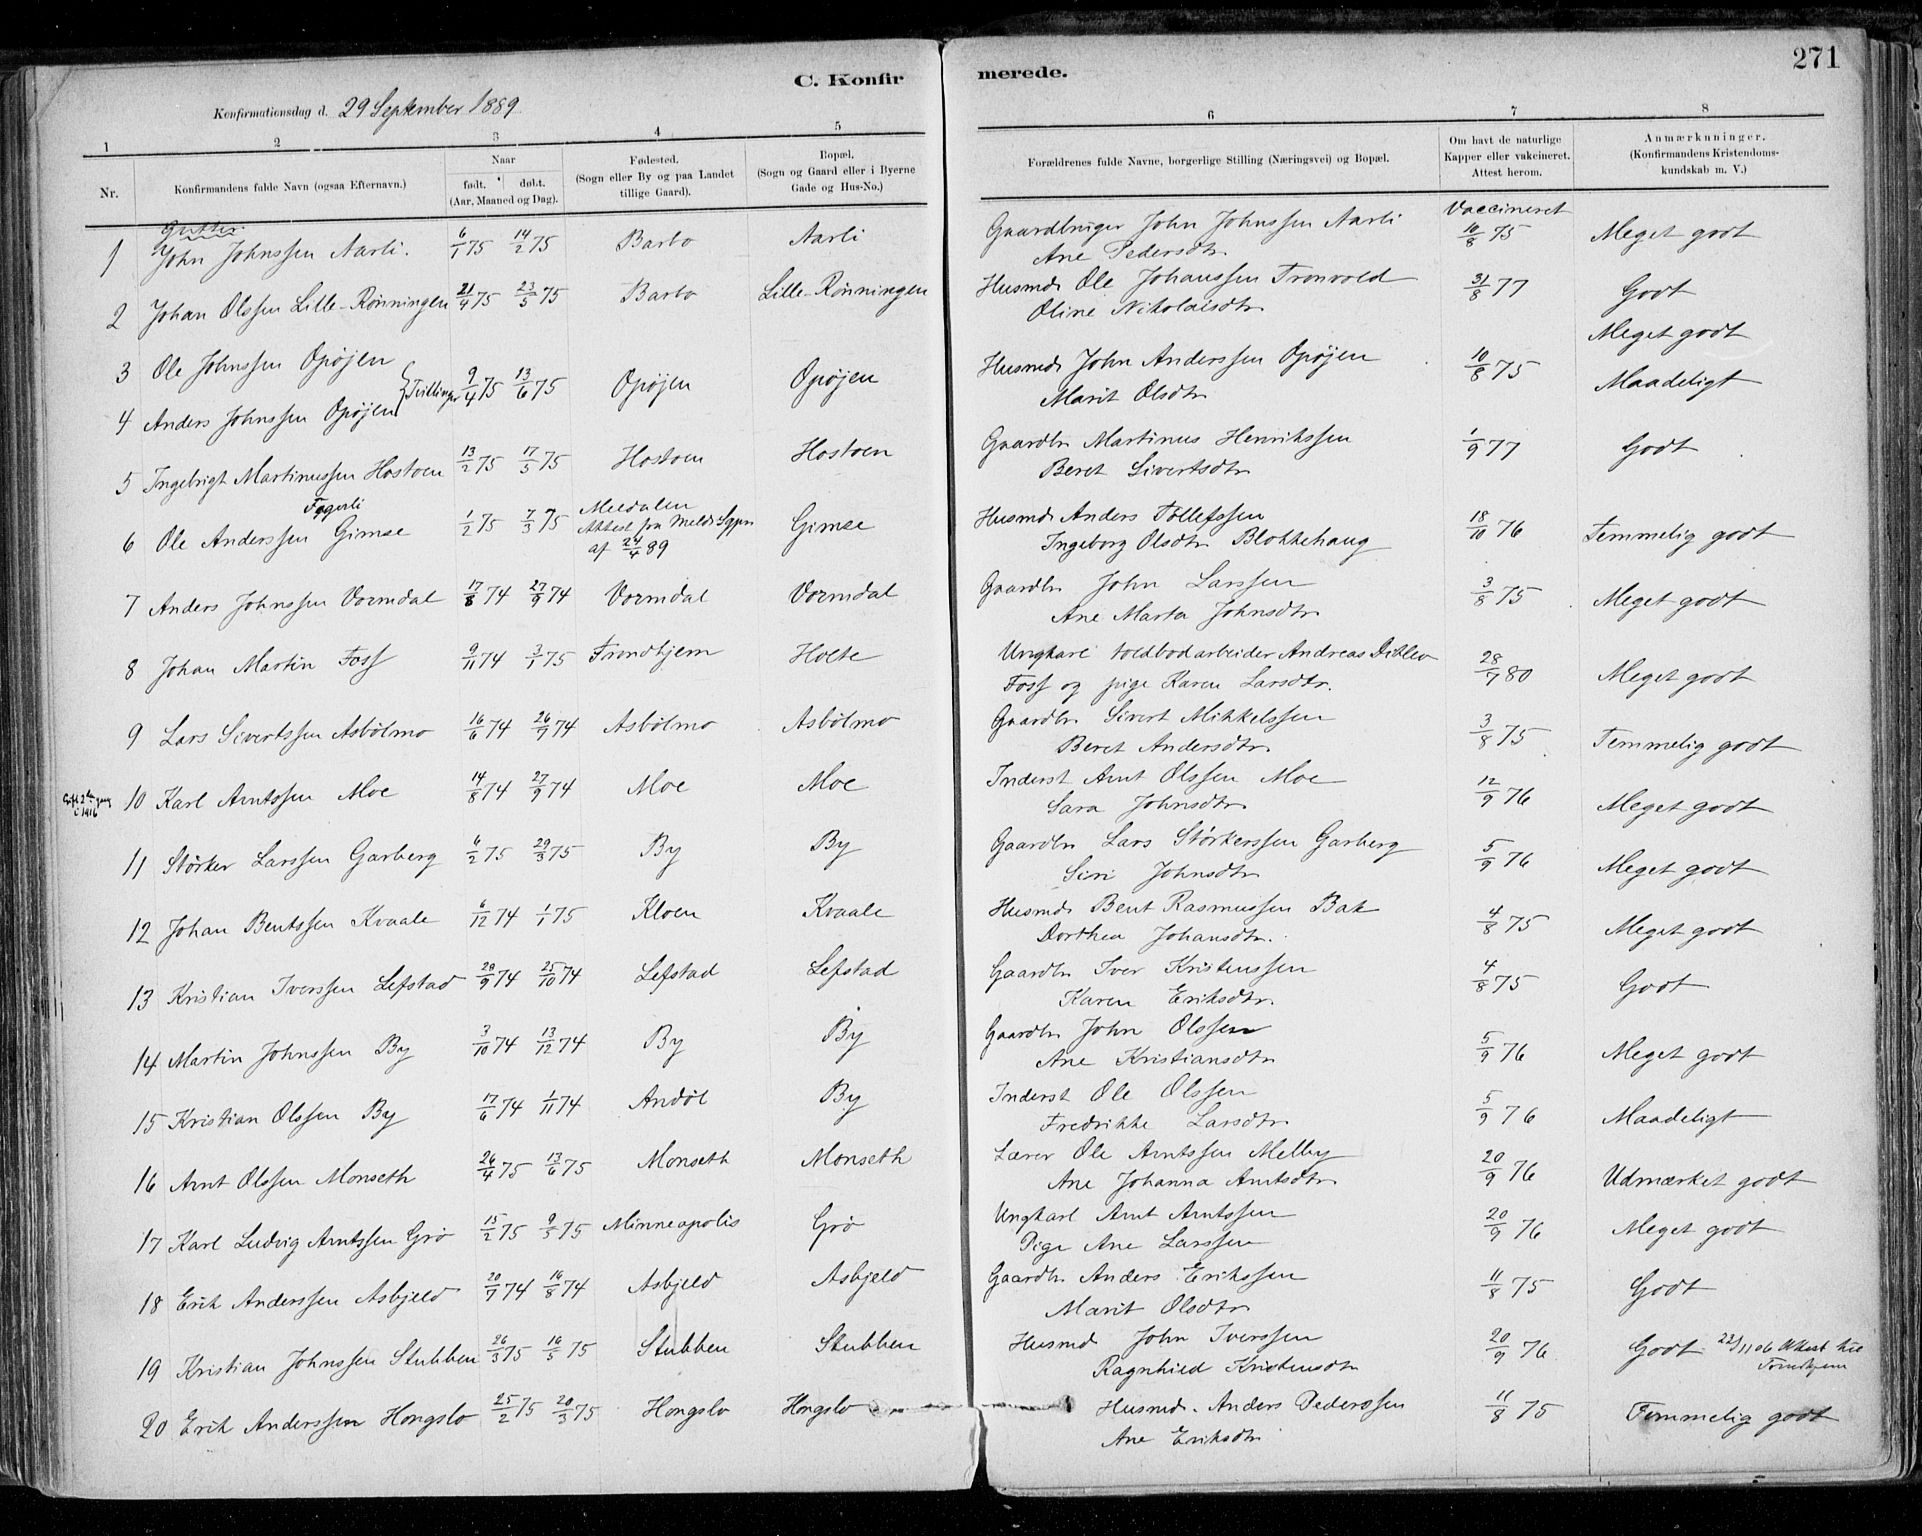 271
C. Konfirmerede.
Konfirmationsdag d. 29 September 1889
1 2 3 4 5 6 7 8
Nr. | Konfirmandens fulde Navn (ogsaa Efternavn.) | Naar født. døbt. (Aar, Maaned og Dag). | Fødested. (Sogn eller By og paa Landet tillige Gaard). | Bopæl. (Sogn og Gaard eller i Byerne Gade og Hus-No.) | Forældrenes fulde Navne, borgerlige Stilling (Næringsvei) og Bopæl. | Om havt de naturlige Kapper eller vakcineret. Attest herom. | Anmærkninger. (Konfirmandens Kristendomskundskab m. V.)
Gutter. Vaccineret
1 John Johnssen Aarli. 6/1 75 14/2 75 Barbo Aarli Gaardbruger John Johnssen Aarli 10/8 75 Meget godt
Ane Pedersdtr
2 Johan Olssen Lille-Rønningen 21/4 75 23/5 75 Barbo Lille-Rønningen Husmd. Ole Johanssen Tronvold 31/8 77 Godt
Oline Nikolaisdtr
3 Ole Johnssen Opøjen Meget godt
Tvillinger 9/4 75 13/6 75 Opøjen Opøjen Husmd. John Anderssen Opøjen 10/8 75
4 Anders Johnssen Opøjen Marit Olsdtr Maadeligt
5 Ingebrigt Martinussen Hostoen 13/2 75 17/5 75 Hostoen Hostoen Gaardbr Martinus Henrikssen 1/9 77 Godt
Beret Sivertsdtr
Fagerli
6 Ole Anderssen Gimse 1/2 75 7/3 75 Meldalen Attest fra Meld. Sgpr af 24/4 89 Gimse Husmd. Anders Tollefssen 18/10 76 Temmelig godt
Ingeborg Olsdtr Blokkehaug
7 Anders Johnssen Vormdal 17/8 74 27/9 74 Vormdal Vormdal Gaardbr John Larssen 3/8 75 Meget godt
Ane Marta Johnsdtr
8 Johan Martin Foss 9/11 74 3/1 75 Trondhjem Holte Ungkarl toldbodarbeider Andreas Ditlev 28/7 80 Meget godt
Foss og pige Karen Larsdtr.
9 Lars Sivertssen Asbølmo 16/6 74 26/7 74 Asbølmo Asbølmo Gaardbr Sivert Mikkelssen 3/8 75 Temmelig godt
Beret Andersdtr
Gift 2den gang i 1916
10 Karl Arntssen Moe 14/8 74 27/9 74 Moe Moe Inderst Arnt Olssen Moe 12/9 76 Meget godt
Sara Johnsdtr
11 Størker Larssen Garberg 6/2 75 29/3 75 By By Gaardbr Lars Størkerssen Garberg 5/9 76 Meget godt
Siri Johnsdtr
12 Johan Bentssen Kvaale 6/12 74 1/1 75 Kloen Kvaale Husmd. Bent Rasmussen Bak 4/8 75 Meget godt
Dorthea Johansdtr.
13 Kristian Iverssen Lefstad 20/9 74 25/10 74 Lefstad Lefstad Gaardbr Iver Kristenssen 4/8 75 Godt
Karen Eriksdtr.
14 Martin Johnssen By 3/10 74 13/12 74 By By Gaardbr John Olssen 5/9 76 Meget godt
Ane Kristiansdtr
15 Kristian Olssen By 17/6 74 1/11 74 Andøl By Inderst Ole Olssen 5/9 76 Maadeligt
Fredrikke Larsdtr
16 Arnt Olssen Monseth 26/4 75 13/6 75 Monseth Monseth Lærer Ole Arntssen Melby 20/9 76 Udmærket godt
Ane Johanna Arntsdtr
17 Karl Ludvig Arntssen Grø 15/2 75 9/5 75 Minneapolis Grø Ungkarl Arnt Arntssen 20/9 76 Meget godt
Pige Ane Larssen
18 Erik Anderssen Asbjeld 20/7 74 16/8 74 Asbjeld Asbjeld Gaardbr Anders Erikssen 11/8 75 Godt
Marit Olsdtr
19 Kristian Johnssen Stubben 26/3 75 16/5 75 Stubben Stubben Husmd John Iverssen 20/9 76 Godt. 22/11 06 Attest til Trondhjem
Ragnhild Kristensdtr
20 Erik Anderssen Hongslo 25/2 75 20/3 75 Hongslo Hongslo Husmd. Anders Pederssen 11/8 75 Temmelig godt
Ane Eriksdtr